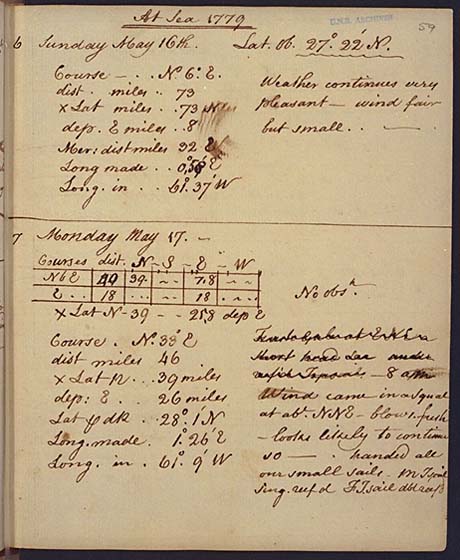 At Sea 1779
U.N.B. ARCHIVES
59
6 Sunday May 16th. Lat. Ob. 27°. 22' N.
Course - . . No 6°. E.
dist. miles . 73
x Lat miles . . 73 N
dep. E miles . . 8
Mer: dist miles 32 E
Long made . . 0°.58' E
Long. in . . 61°. 37' W
Weather continues very
pleasant - wind fair
but small . . -
7 Monday May 17. -
Courses dist. N - S - E - W
N b E 40 39. - - 7.8
E . . 18 . . . - - 18 . . .
x Lat N - 39 - - 25.8 dep E
No obsn.
Course . No. 33° E
dist miles 46
x Lat N . . 39 miles
dep: E . 26 miles
Lat dR . 28°. 1' N
Long. made. 1°. 26' E
Long. in . 61°. 9' W
at E.N.E a
short head Sea under
reefd Topsails - 8 am
Wind came in a squal
at abt. NNE - blows. fresh
- looks likely to continue
so - . handed all
our small sails - M Tsail
Sing. reef'd F. Tsail dbl reef'd